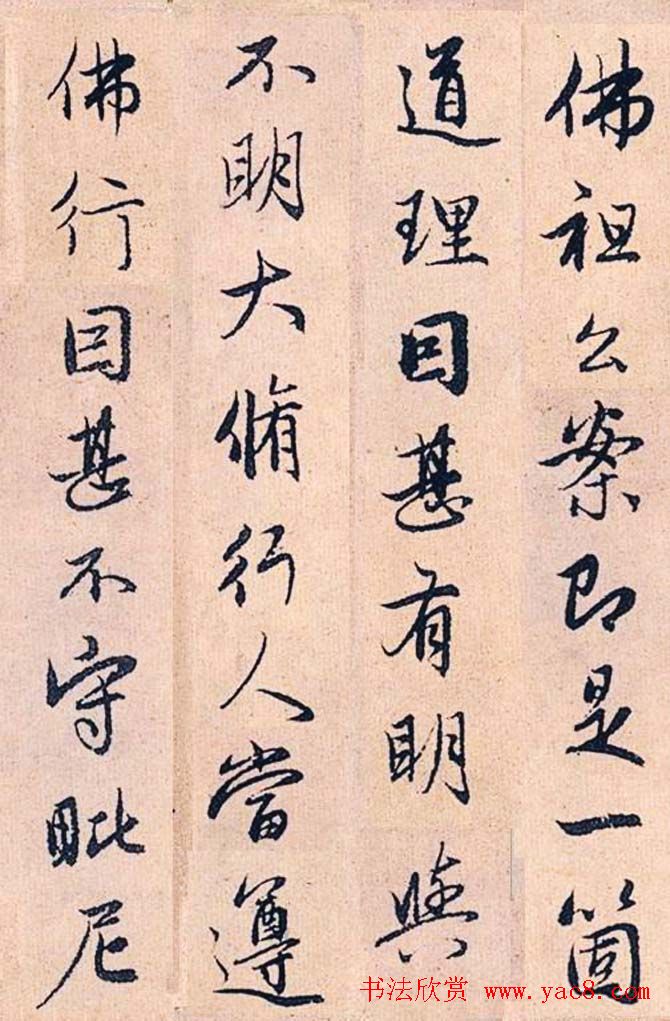 佛祖公案即是一箇
道理因甚有明與
不明大脩行人當遵
佛行因甚不守毗尼
书法欣赏 www.yac8.com